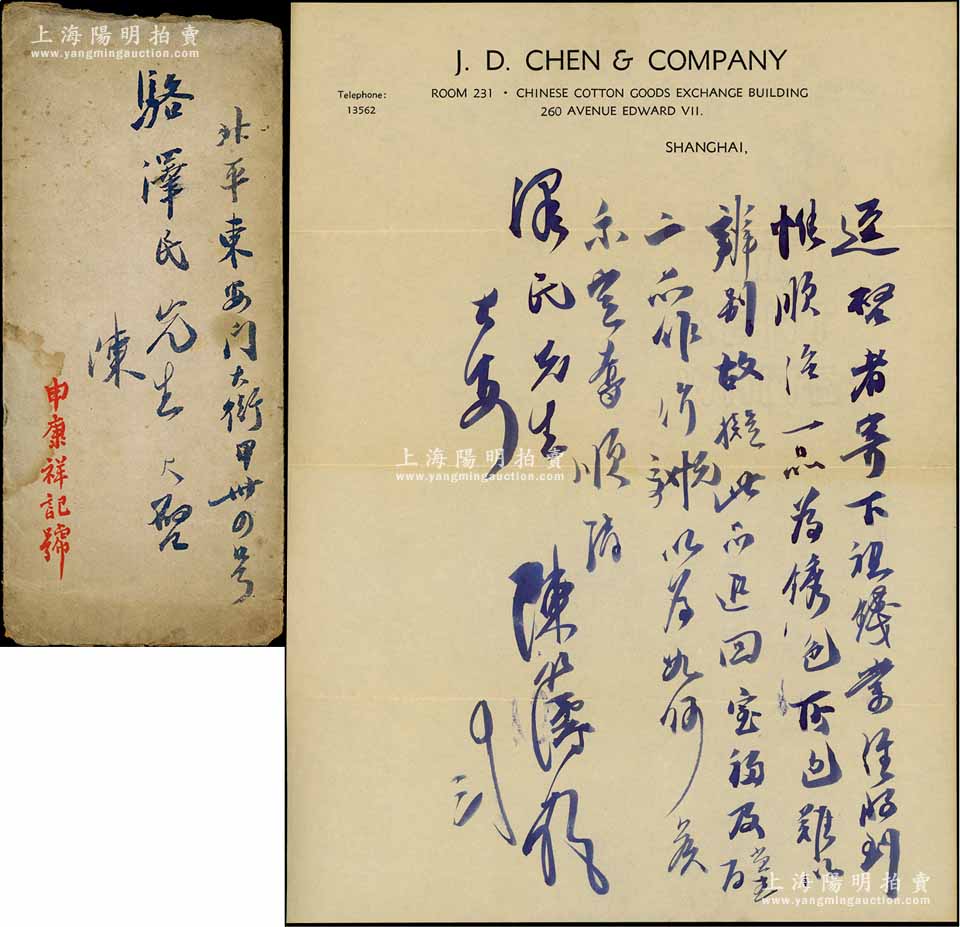 上海陽明拍賣
www.yangmingauction.com
北平東安门大街甲卅四号
駱澤民先生大啓
陳
申康祥記號
J. D. CHEN & COMPANY
Telephone:
13562
ROOM 231 · CHINESE COTTON GOODS EXCHANGE BUILDING
260 AVENUE EDWARD VII.
SHANGHAI,
逕啓者寄下祖錢業經收到
惟順治一品為銹色所包難以
辨别故擬此品退回宝福及百
二品作價以為如何矦
示定奪順請
澤民先生
大安
陳
上海陽明拍賣
www.yangmingauction.com
上海陽明拍賣
www.yangmingauction.com